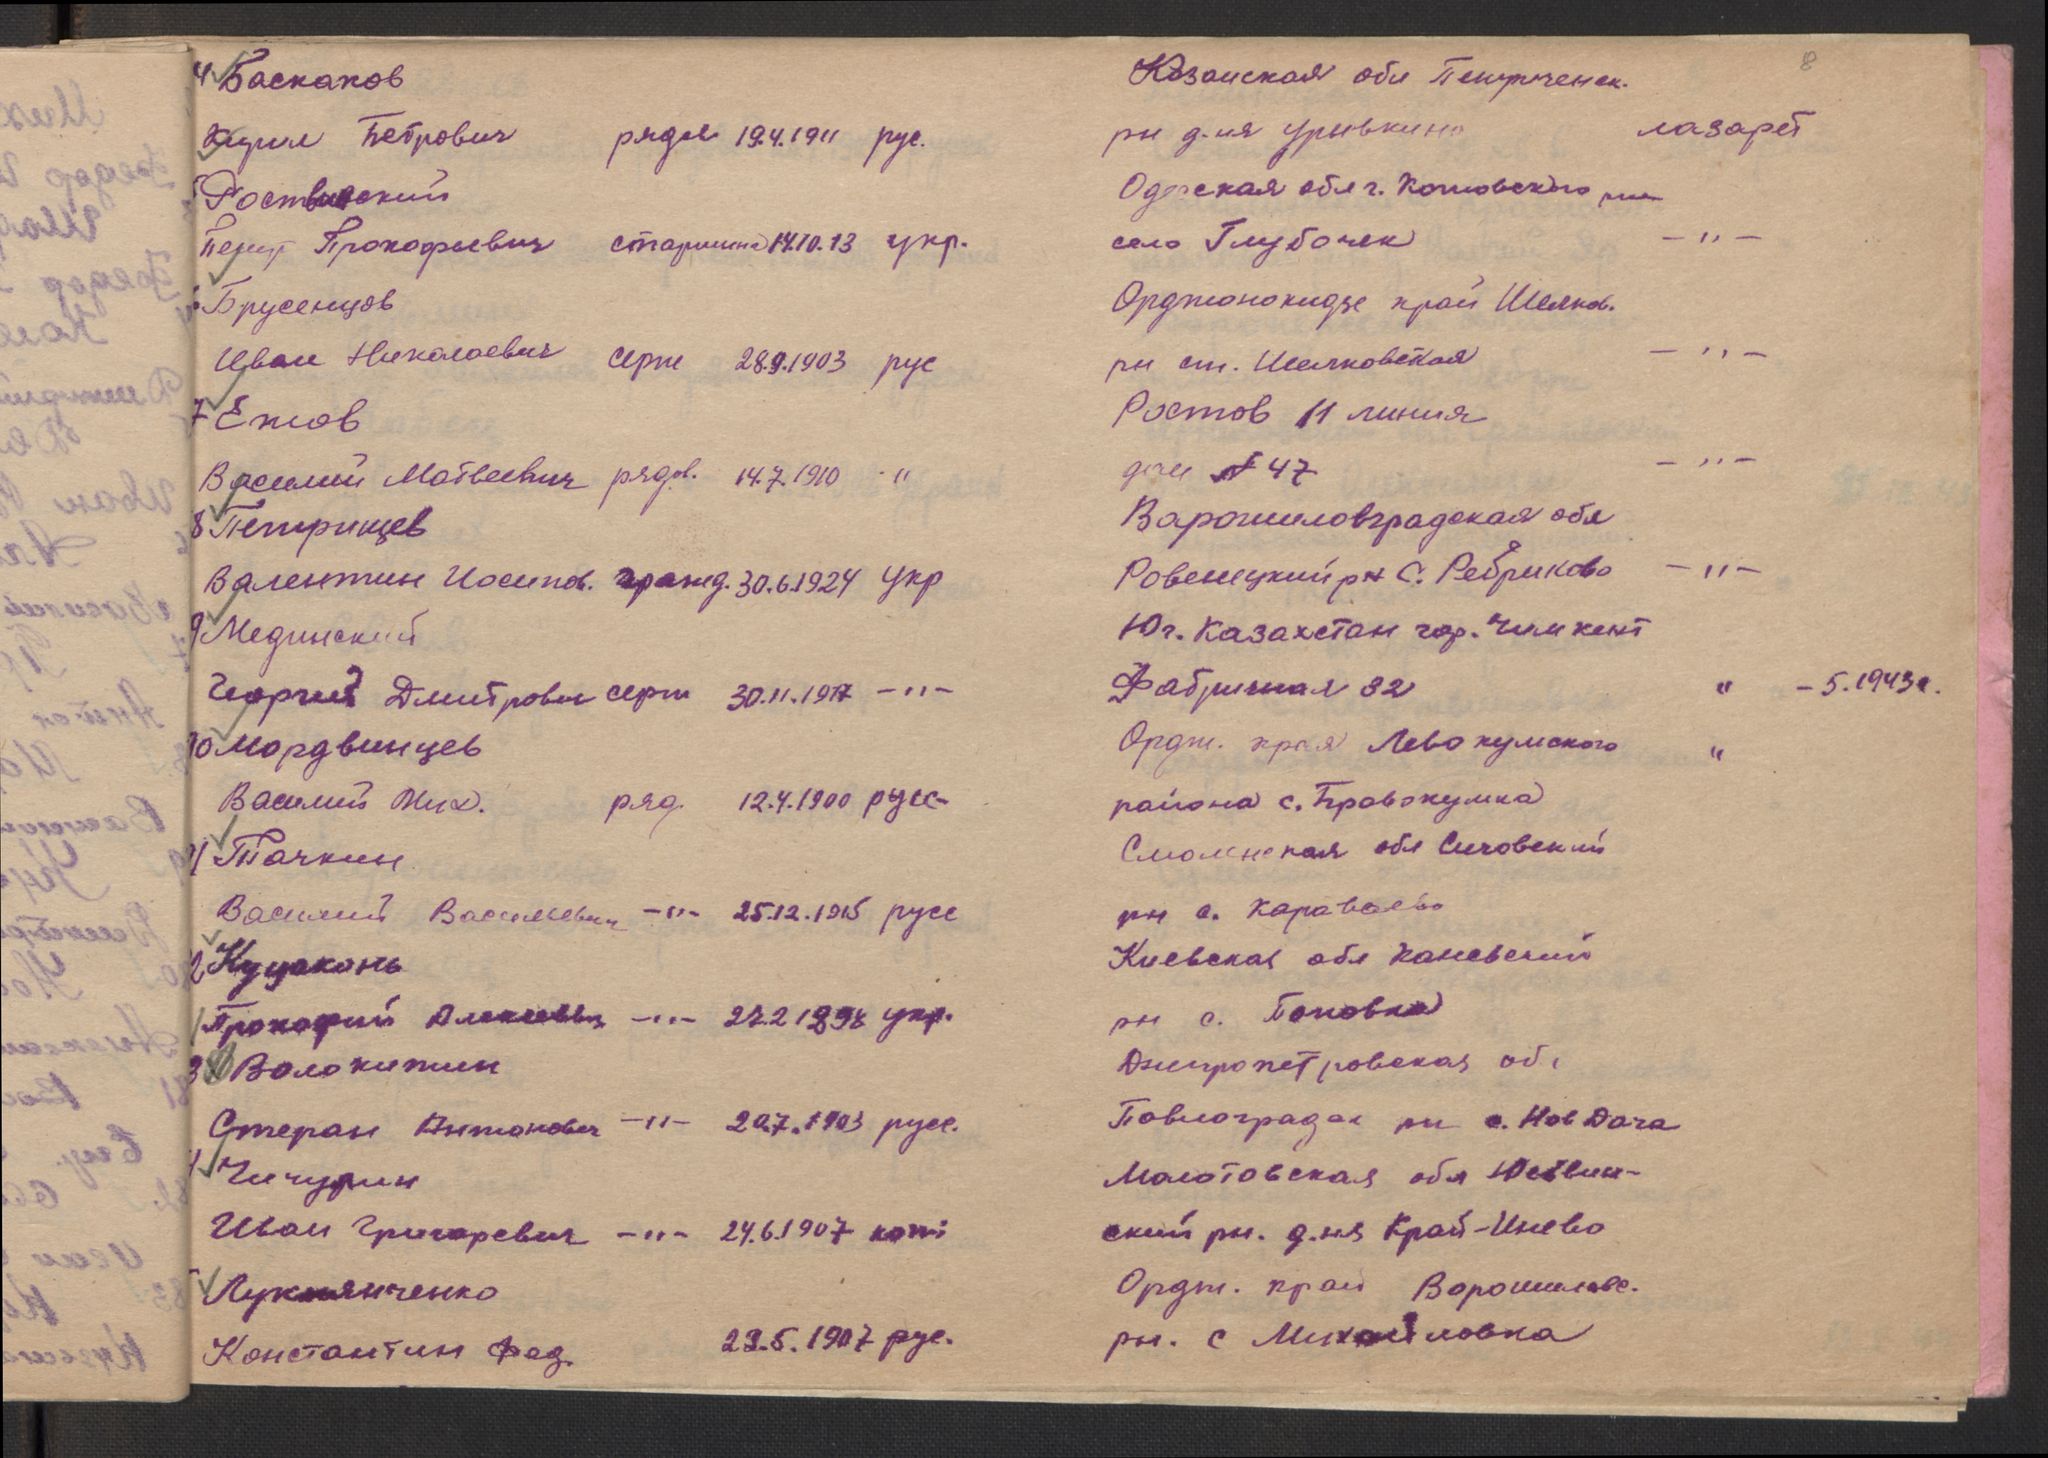 8
4 Баскаков Казанская обл Пестреченск.
Кирил Петрович рядов 19.4.1911 рус. рн д-ня Урывкино лазарет
5 Одесская обл г. Котовского рн
Петр Прокофиевич старшина 14.10.13 укр. село Глубочек —"—
6 Брусенцов Орджоникидзе край Шелков.
Иван Николаевич серж 28.9.1903 рус рн ст. Шелковская —"—
7 Ежов Ростов 11 линия
Василий Матвеевич рядов. 14.7.1910 " дом № 47 —"—
8 Петрищев Варошиловградская обл
Валентин Иосипов. гражд. 30.6.1924 укр Ровенецкий рн с. Ребриково —"—
9 Мединский Юг. Казахстан гор. Чимкент
Георгий Дмитрович серж 30.11.1917 —"— Фабричная 32 " — 5.1943г.
10 Мордвинцев Ордж. края Левокумского "
Василий Мих. ряд. 12.4.1900 русс- района с. Правокумка
11 Тачкин Смоленская обл Сычовский
Василий Васильевич —"— 25.12.1915 русс рн с. Караваево
2 Куцаконь Киевская обл Каневский
Прокофий Алексеевич —"— 27.2 1898 укр. рн с. Поповка
3 Волокитин Днепропетровская об
Степан Антонович —"— 20.7.1903 русс. Павлоградск рн с. Нов Дача
4 Чичурин Молотовская обл Юсвин-
Иван Григоревич —"— 24.6.1907 коми ский рн. д.ня Край-Инево
Лукьянченко Ордж. край Ворошиловс.
Константин Фед. 23.5.1907 рус. рн. с Михайловка